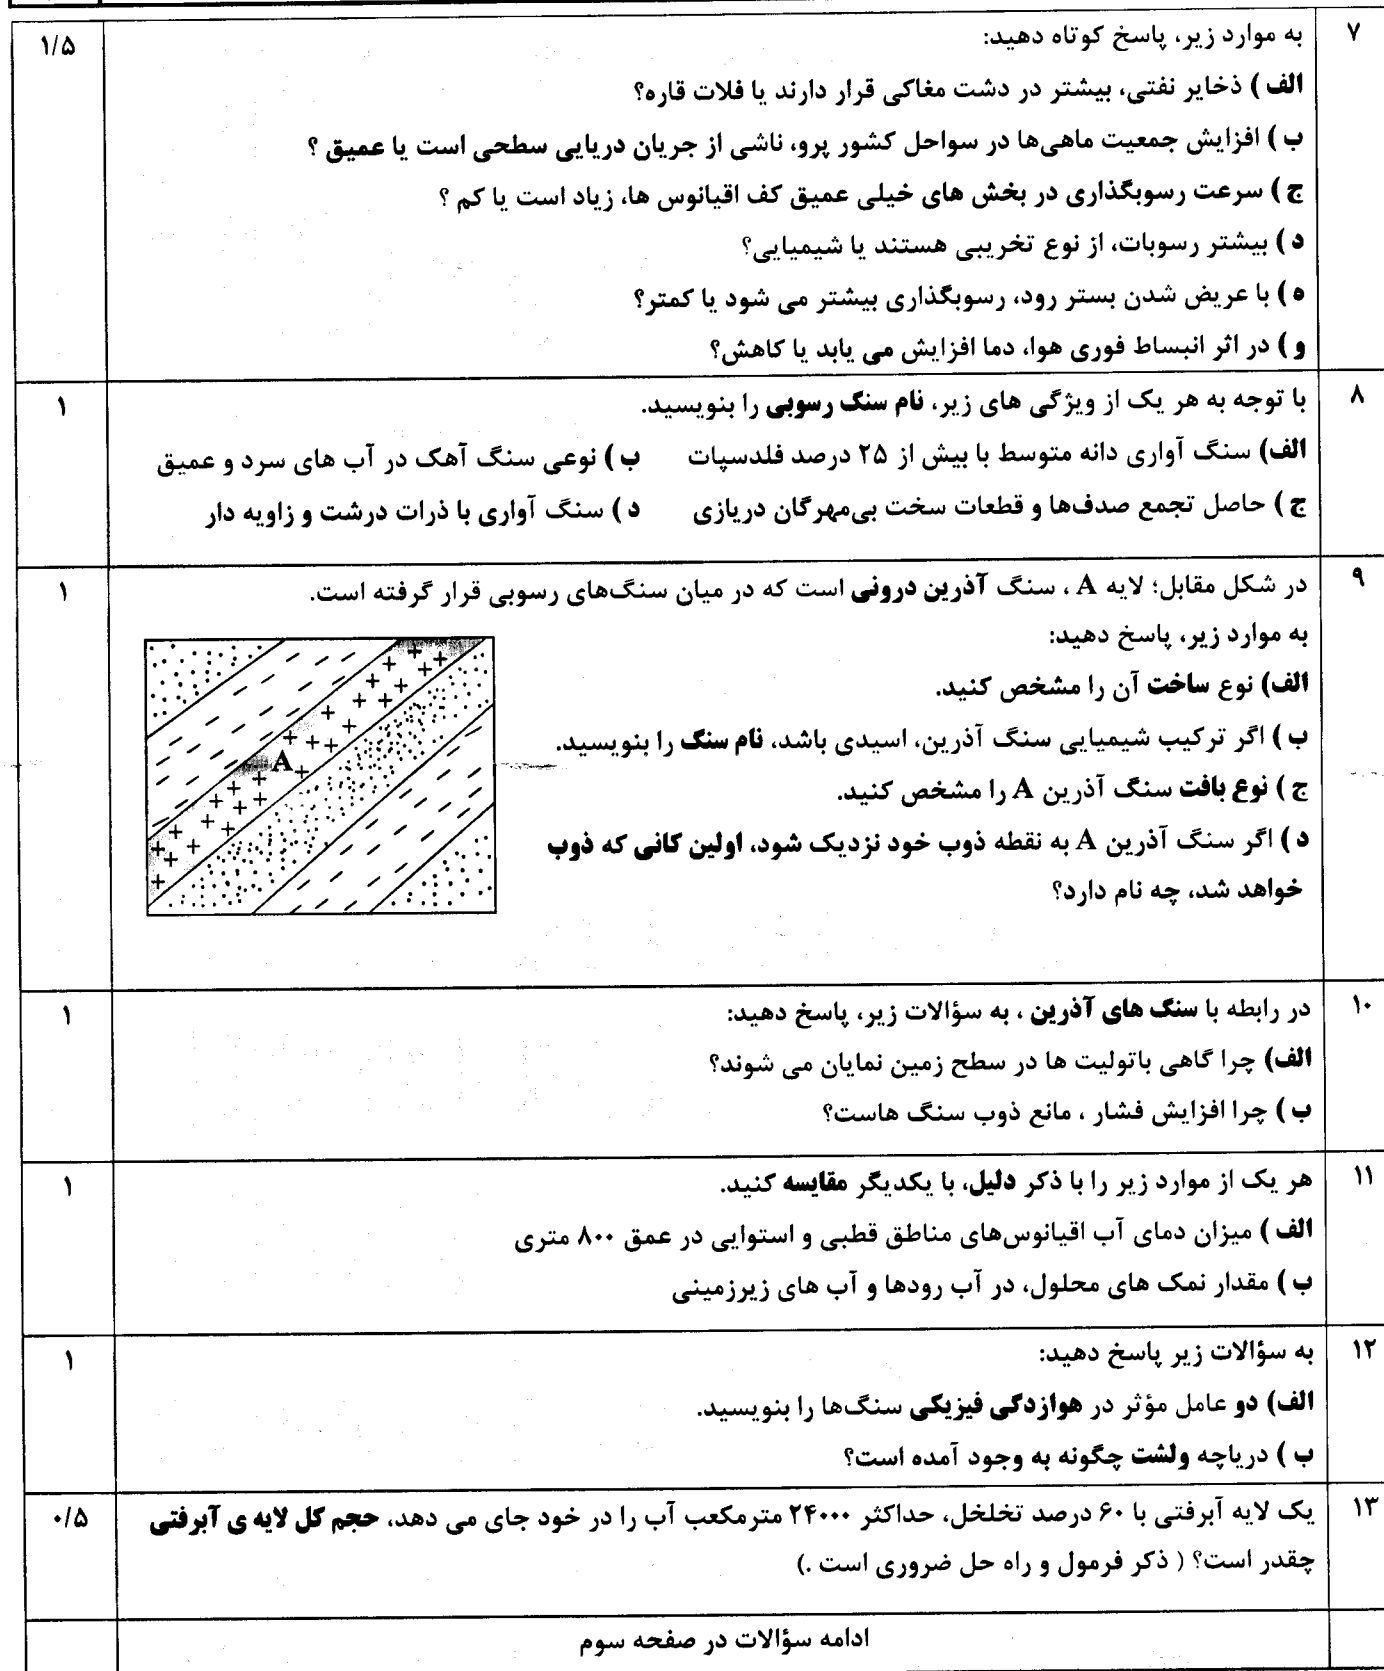 ۷ به موارد زیر، پاسخ کوتاه دهید: ۱/۵
الف ) ذخایر نفتی، بیشتر در دشت مغاکی قرار دارند یا فلات قاره؟
ب ) افزایش جمعیت ماهی‌ها در سواحل کشور پرو، ناشی از جریان دریایی سطحی است یا عمیق ؟
ج ) سرعت رسوبگذاری در بخش های خیلی عمیق کف اقیانوس ها، زیاد است یا کم ؟
د ) بیشتر رسوبات، از نوع تخریبی هستند یا شیمیایی؟
ه ) با عریض شدن بستر رود، رسوبگذاری بیشتر می شود یا کمتر؟
و ) در اثر انبساط فوری هوا، دما افزایش می یابد یا کاهش؟
۸ با توجه به هر یک از ویژگی های زیر، نام سنگ رسوبی را بنویسید. ۱
الف) سنگ آواری دانه متوسط با بیش از ۲۵ درصد فلدسپات ب ) نوعی سنگ آهک در آب های سرد و عمیق
ج ) حاصل تجمع صدف‌ها و قطعات سخت بی‌مهرگان دریازی د ) سنگ آواری با ذرات درشت و زاویه دار
۹ در شکل مقابل؛ لایه A ، سنگ آذرین درونی است که در میان سنگ‌های رسوبی قرار گرفته است. ۱
به موارد زیر، پاسخ دهید:
الف) نوع ساخت آن را مشخص کنید.
ب ) اگر ترکیب شیمیایی سنگ آذرین، اسیدی باشد، نام سنگ را بنویسید.
ج ) نوع بافت سنگ آذرین A را مشخص کنید.
د ) اگر سنگ آذرین A به نقطه ذوب خود نزدیک شود، اولین کانی که ذوب
خواهد شد، چه نام دارد؟
A
۱۰ در رابطه با سنگ های آذرین ، به سؤالات زیر، پاسخ دهید: ۱
الف) چرا گاهی باتولیت ها در سطح زمین نمایان می شوند؟
ب ) چرا افزایش فشار ، مانع ذوب سنگ هاست؟
۱۱ هر یک از موارد زیر را با ذکر دلیل، با یکدیگر مقایسه کنید. ۱
الف ) میزان دمای آب اقیانوس‌های مناطق قطبی و استوایی در عمق ۸۰۰ متری
ب ) مقدار نمک های محلول، در آب رودها و آب های زیرزمینی
۱۲ به سؤالات زیر پاسخ دهید: ۱
الف) دو عامل مؤثر در هوازدگی فیزیکی سنگ‌ها را بنویسید.
ب ) دریاچه ولشت چگونه به وجود آمده است؟
۱۳ یک لایه آبرفتی با ۶۰ درصد تخلخل، حداکثر ۲۴۰۰۰ مترمکعب آب را در خود جای می دهد، حجم کل لایه ی آبرفتی ۰/۵
چقدر است؟ ( ذکر فرمول و راه حل ضروری است .)
ادامه سؤالات در صفحه سوم